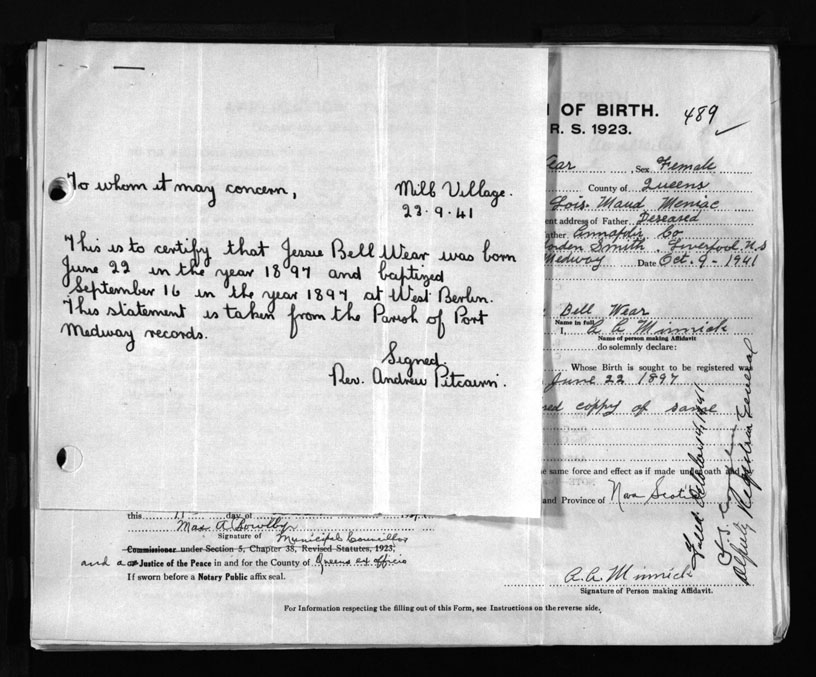 To whom it may concern,
Mill Village.
22.9.41
This is to certify that Jessie Bell Wear was born
June 22 in the year 1897 and baptized
September 16 in the year 1897 at West Berlin.
This statement is taken from the Parish of Port
Medway records.
Signed.
Rev. Andrew Pitcairn.
OF BIRTH. 489
R. S. 1923.
ear, Sex Female
County of Queens
Lois Maud Meniac
address of Father Deseased
ather Annapolis Co
Smith Liverpool N.S
Medway Date Oct. 9 - 1941
Bell Wear
Name in full
I, A A Minnick
Name of person making Affidavit
do solemnly declare:
Whose Birth is sought to be registered was
June 22 1897
copy of same
same force and effect as if made under oath and
and Province of Nova Scotia
Filed October 14, 1941
Deputy Registrar General
this day of
Max A
Signature of Municipal Councillor
Commissioner under Section 5, Chapter 38, Revised Statutes, 1923,
and a Justice of the Peace in and for the County of Queens ex officio
If sworn before a Notary Public affix seal.
A. A Minnick
Signature of Person making Affidavit.
For Information respecting the filling out of this Form, see Instructions on the reverse side.